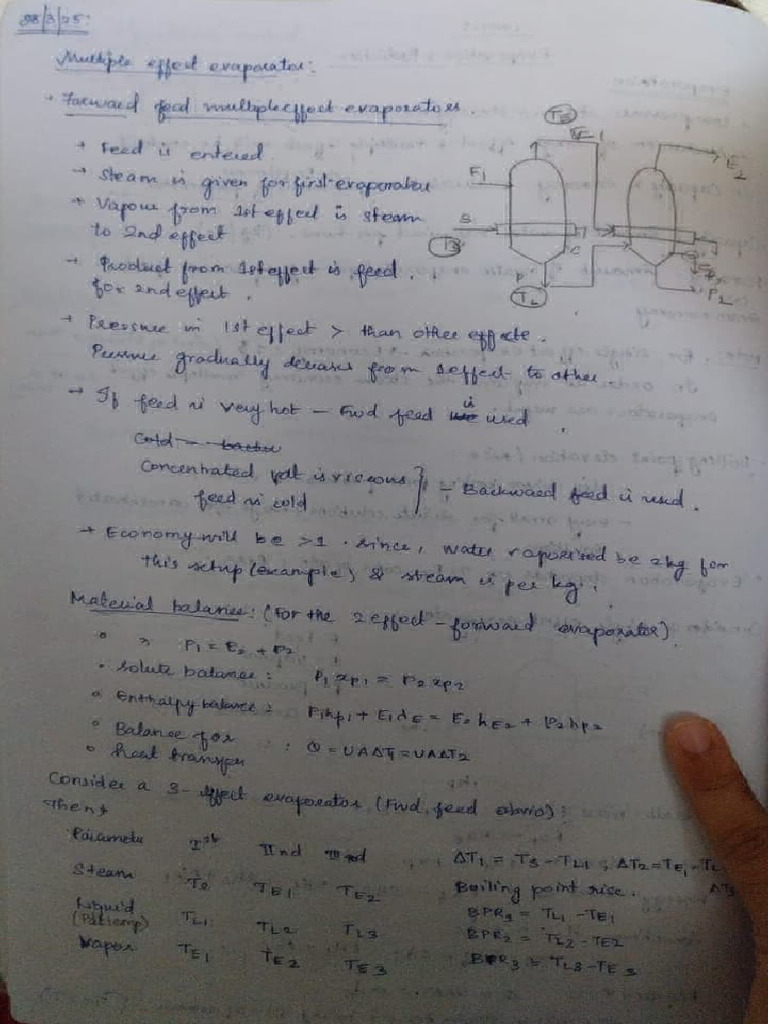 28/3/25:
Multiple effect evaporator:
Forward feed multiple effect evaporators.
→ Feed is entered
→ Steam is given for first evaporator
→ Vapour from 1st effect is steam
to 2nd effect
→ Product from 1st effect is feed
for 2nd effect.
→ Pressure in 1st effect > than other effects.
Pressure gradually decreases from 1 effect to other
→ If feed is very hot – Fwd feed is used.
Cold –
Concentrated pdt is viscous } – Backward feed is used.
feed is cold
→ Economy will be >1. since, water vaporised be 2kg for
this setup (example) & steam is per kg.
F1
S
TS
E1
TL
E2
P2
Material balance: (For the 2 effect – forward evaporator)
P1 = E2 + P2
• Solute balance : P1 xP1 = P2 xP2
• Enthalpy balance : P1hP1 + E1λE = E2 hE2 + P2hP2
• Balance for
• heat transfer : Q = UAΔT1 = UAΔT2
Consider a 3-effect evaporator (Fwd. feed obvio):
Then,
Parameter Ist IInd IIIrd
ΔT1 = TS – TL1 ; ΔT2 = TE1 – TL
Steam TS TE1 TE2
Boiling point rise.
Liquid
(Pdt temp) TL1 TL2 TL3
BPR1 = TL1 – TE1
BPR2 = TL2 – TE2
Vapor TE1 TE2 TE3
BPR3 = TL3 – TE3